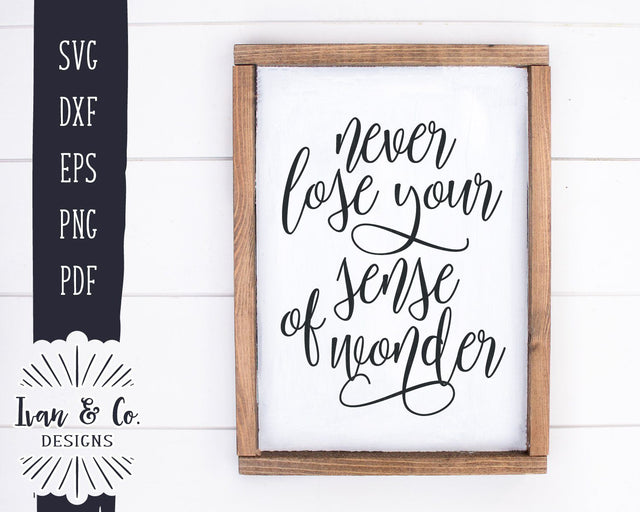 SVG
DXF
EPS
PNG
PDF
Ivan & Co.
DESIGNS
never
lose your
sense
of wonder